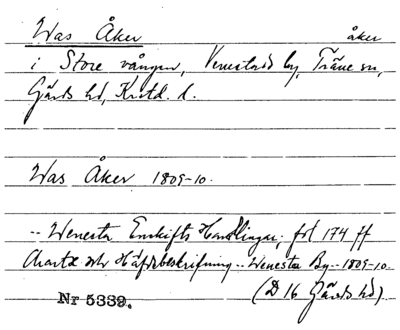 Was Åker åker
i Store vången, Venestads by, Träne sn,
Gärds hd, Kristd. l.
Was Åker 1809-10.
-- Wenesta Enskifts Handlingar, fol 174 ff
Charta och Häfdebeskrifning -- Wenesta By -- 1809-10.
(D 16 Gärds hd).
Nr 5339.